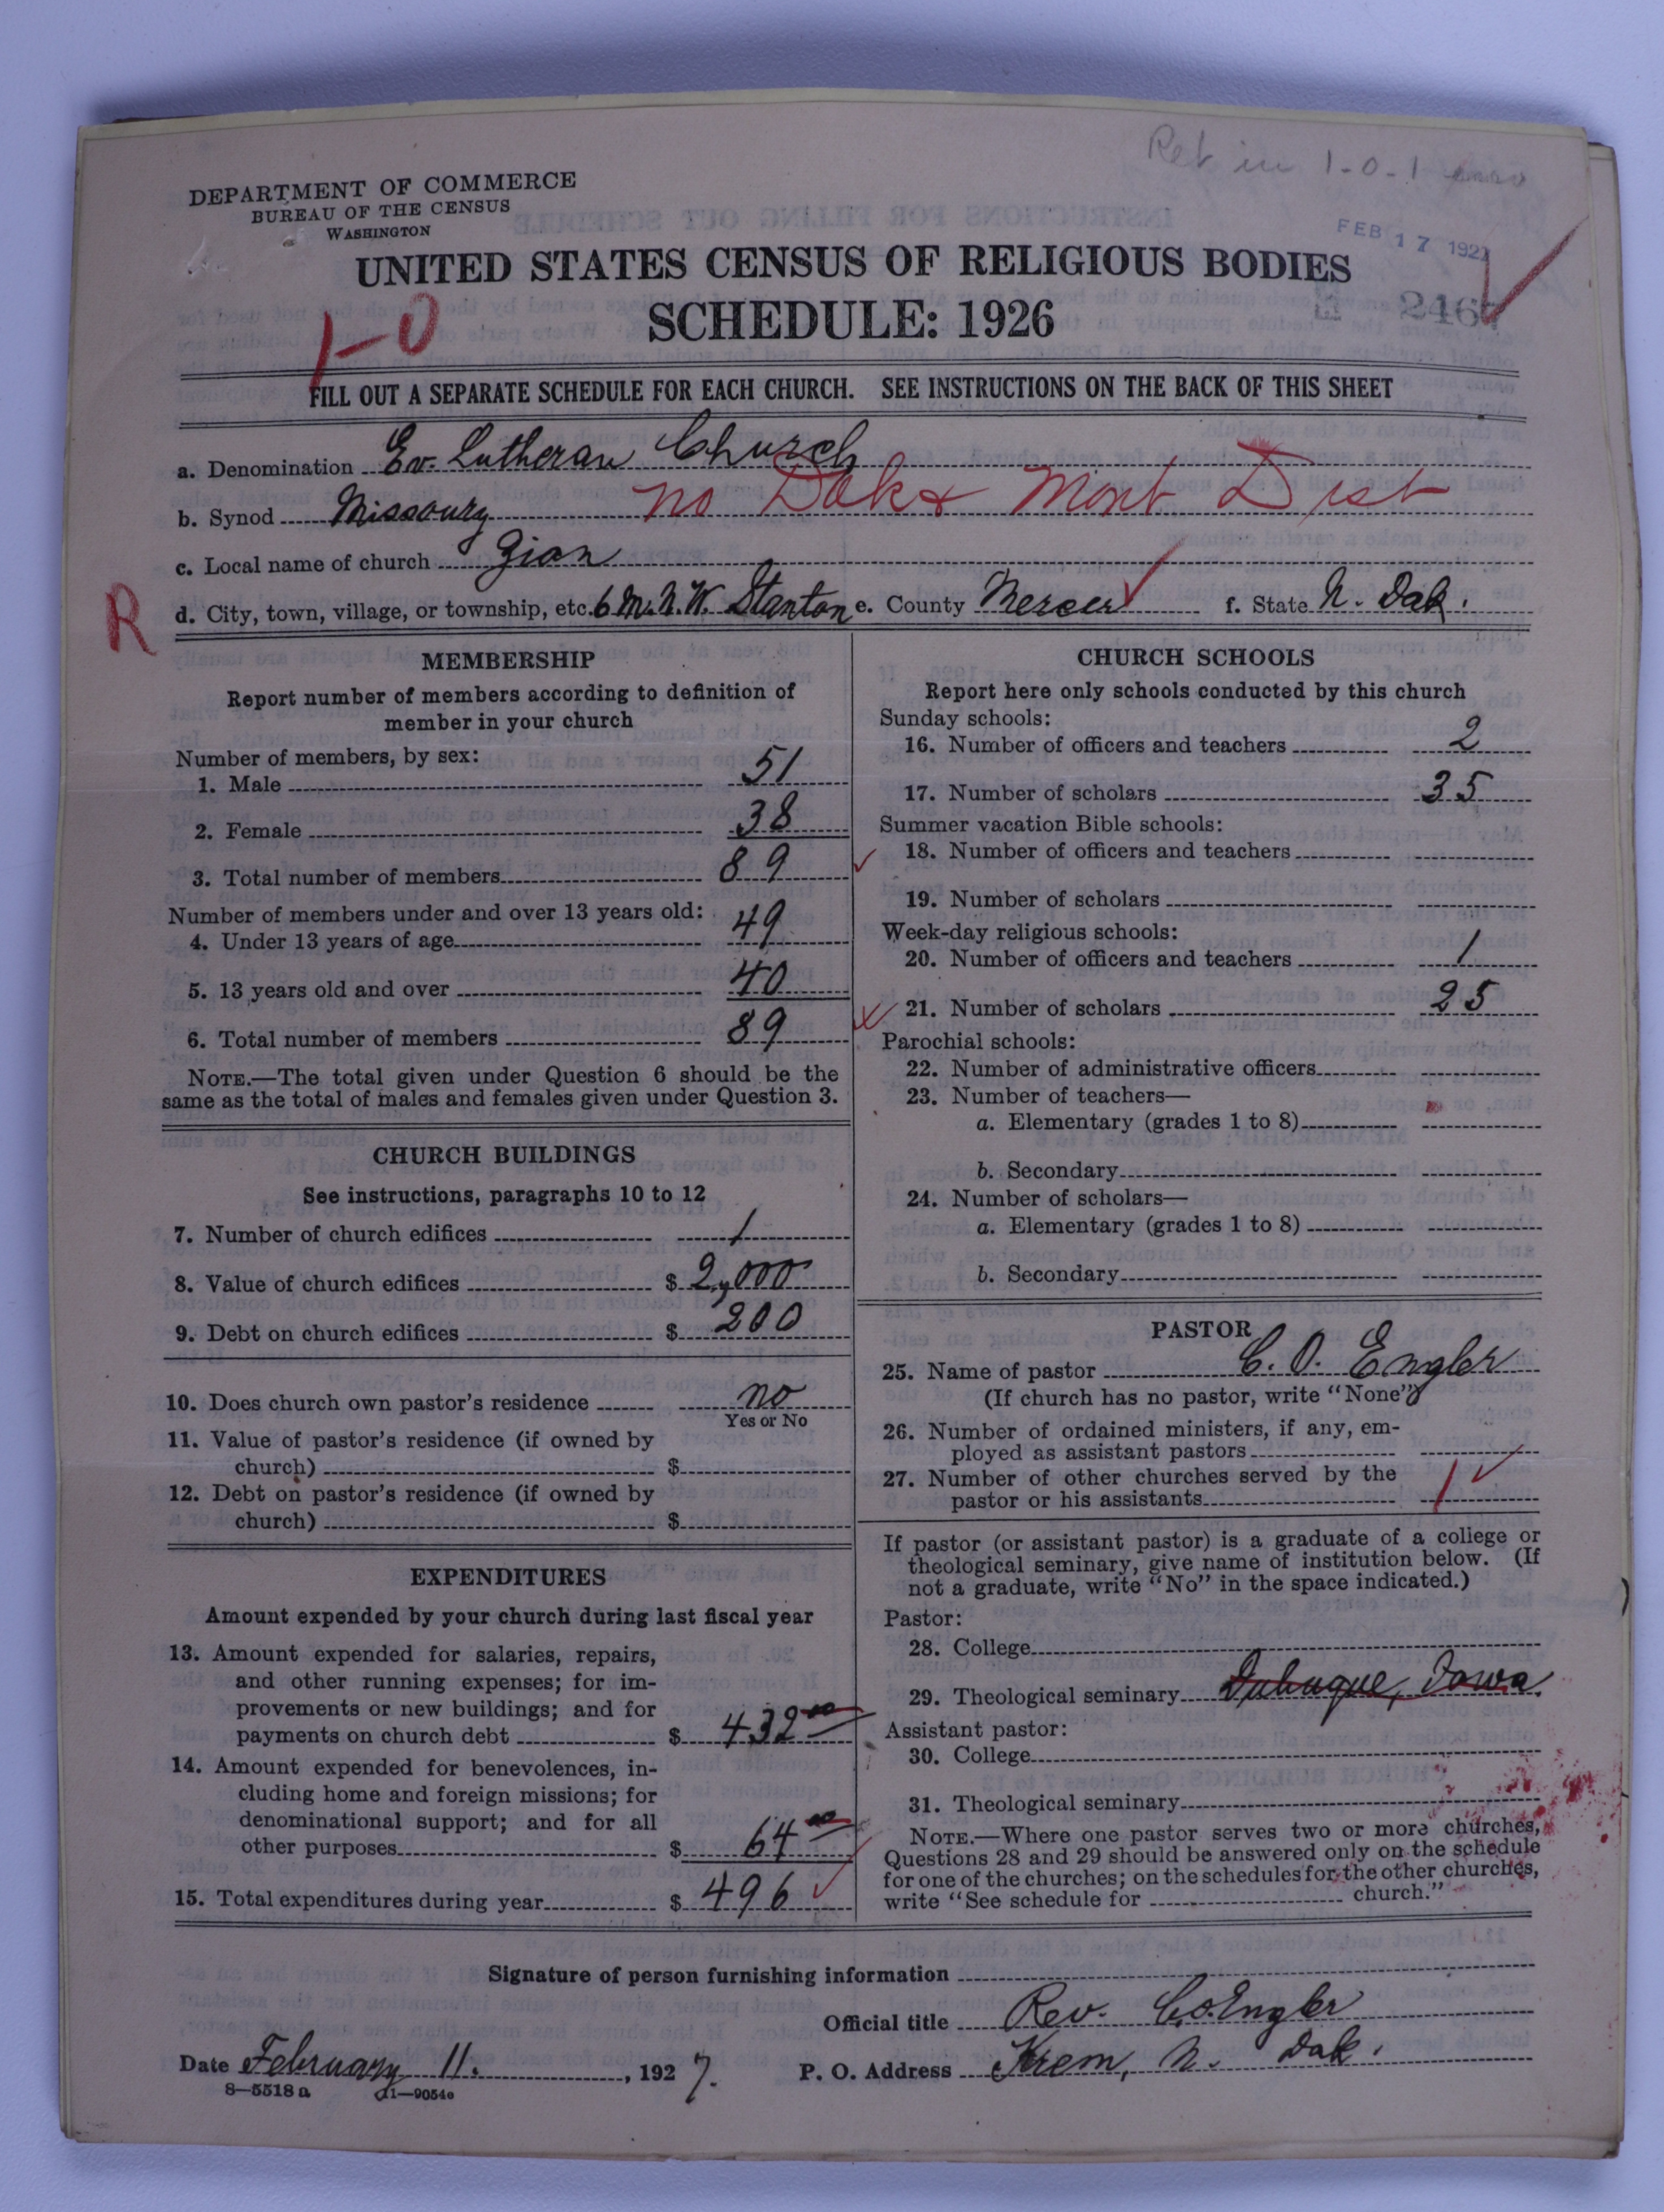 Ret in 1-0-1
DEPARTMENT OF COMMERCE
BUREAU OF THE CENSUS
WASHINGTON
FEB 17 1927
UNITED STATES CENSUS OF RELIGIOUS BODIES
SCHEDULE: 1926
1-0
FILL OUT A SEPARATE SCHEDULE FOR EACH CHURCH. SEE INSTRUCTIONS ON THE BACK OF THIS SHEET
a. Denomination Ev. Lutheran Church
b. Synod Missoury No Dak & Mont Dist
c. Local name of church Zion
R
d. City, town, village, or township, etc. 6 M. N. W. Stanton e. County Mercer f. State N. Dak.
MEMBERSHIP
Report number of members according to definition of
member in your church
Number of members, by sex:
1. Male 51
2. Female 38
3. Total number of members 89
Number of members under and over 13 years old:
4. Under 13 years of age 49
5. 13 years old and over 40
6. Total number of members 89
NOTE.—The total given under Question 6 should be the
same as the total of males and females given under Question 3.
CHURCH BUILDINGS
See instructions, paragraphs 10 to 12
7. Number of church edifices 1
8. Value of church edifices $ 2,000
9. Debt on church edifices $ 200
10. Does church own pastor's residence no
Yes or No
11. Value of pastor's residence (if owned by
church) $
12. Debt on pastor's residence (if owned by
church) $
EXPENDITURES
Amount expended by your church during last fiscal year
13. Amount expended for salaries, repairs,
and other running expenses; for im-
provements or new buildings; and for
payments on church debt $ 432 00
14. Amount expended for benevolences, in-
cluding home and foreign missions; for
denominational support; and for all
other purposes $ 64 00
15. Total expenditures during year $ 496
CHURCH SCHOOLS
Report here only schools conducted by this church
Sunday schools:
16. Number of officers and teachers 2
17. Number of scholars 35
Summer vacation Bible schools:
18. Number of officers and teachers
19. Number of scholars
Week-day religious schools:
20. Number of officers and teachers 1
21. Number of scholars 25
Parochial schools:
22. Number of administrative officers
23. Number of teachers—
a. Elementary (grades 1 to 8)
b. Secondary
24. Number of scholars—
a. Elementary (grades 1 to 8)
b. Secondary
PASTOR
25. Name of pastor C. O. Engler
(If church has no pastor, write "None")
26. Number of ordained ministers, if any, em-
ployed as assistant pastors
27. Number of other churches served by the
pastor or his assistants 1
If pastor (or assistant pastor) is a graduate of a college or
theological seminary, give name of institution below. (If
not a graduate, write "No" in the space indicated.)
Pastor:
28. College
29. Theological seminary Dubuque, Iowa.
Assistant pastor:
30. College
31. Theological seminary
NOTE.—Where one pastor serves two or more churches,
Questions 28 and 29 should be answered only on the schedule
for one of the churches; on the schedules for the other churches,
write "See schedule for church."
Signature of person furnishing information
Official title Rev. C. O. Engler
Date February 11., 1927. P. O. Address Krem, N. Dak.
8—5518a 11—9054a